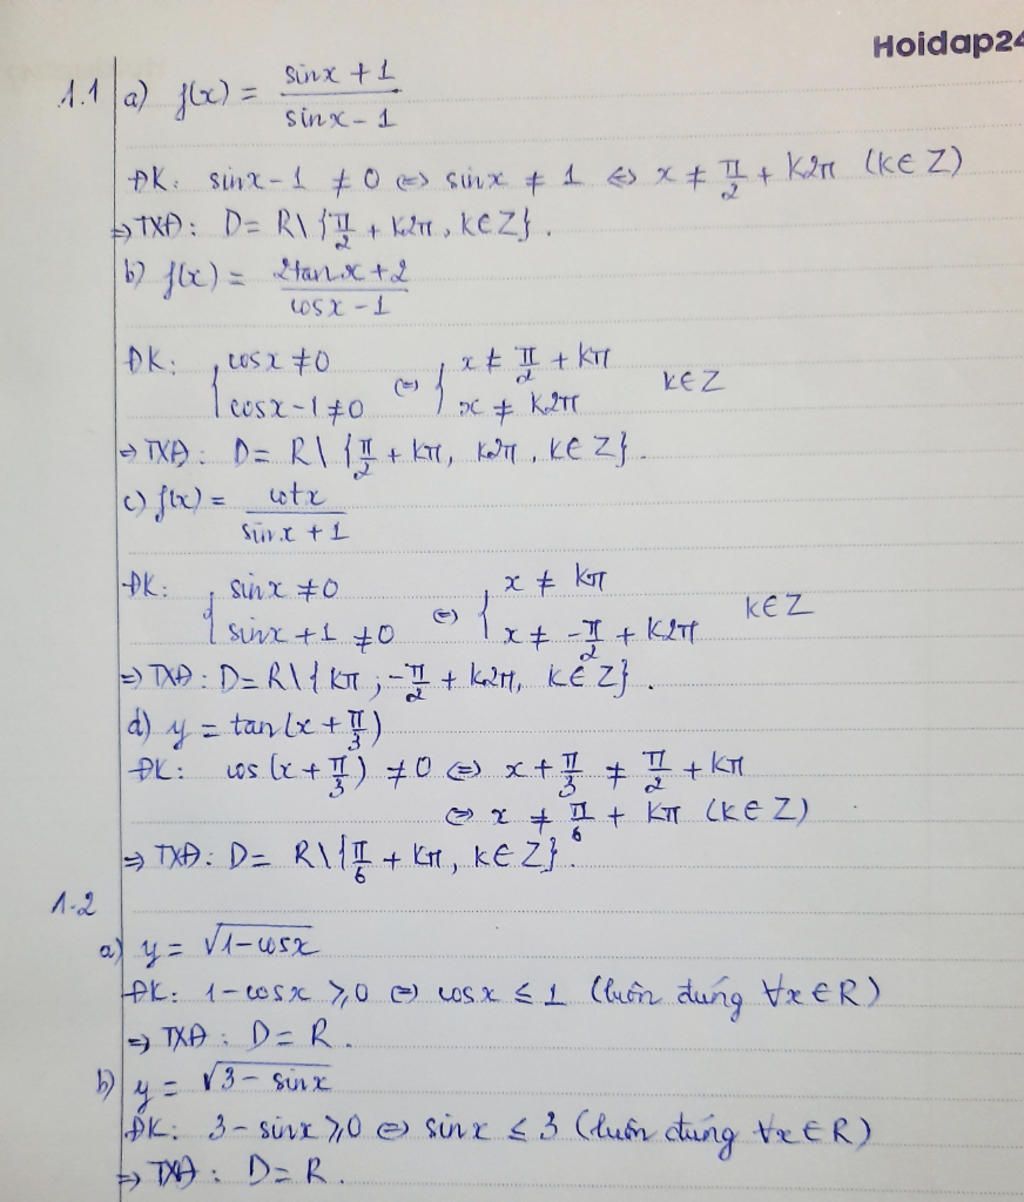 Hoidap24
1.1 a) f(x) = (sinx + 1)/(sinx - 1)
ĐK: sinx - 1 ≠ 0 ⇔ sinx ≠ 1 ⇔ x ≠ π/2 + k2π (k∈Z)
⇒ TXĐ: D = R\{π/2 + k2π, k∈Z}.
b) f(x) = (2tanx + 2)/(cosx - 1)
ĐK: { cosx ≠ 0 ⇔ { x ≠ π/2 + kπ k∈Z
cosx - 1 ≠ 0 x ≠ k2π
⇒ TXĐ: D = R\{π/2 + kπ, k2π, k∈Z}.
c) f(x) = cotx/(sinx + 1)
ĐK: { sinx ≠ 0 ⇔ { x ≠ kπ k∈Z
sinx + 1 ≠ 0 x ≠ -π/2 + k2π
⇒ TXĐ: D = R\{kπ; -π/2 + k2π, k∈Z}.
d) y = tan(x + π/3)
ĐK: cos(x + π/3) ≠ 0 ⇔ x + π/3 ≠ π/2 + kπ
⇔ x ≠ π/6 + kπ (k∈Z)
⇒ TXĐ: D = R\{π/6 + kπ, k∈Z}.
1.2
a) y = √(1-cosx)
ĐK: 1 - cosx ≥ 0 ⇔ cosx ≤ 1 (luôn đúng ∀x∈R)
⇒ TXĐ: D = R.
b) y = √(3 - sinx)
ĐK: 3 - sinx ≥ 0 ⇔ sinx ≤ 3 (luôn đúng ∀x∈R)
⇒ TXĐ: D = R.